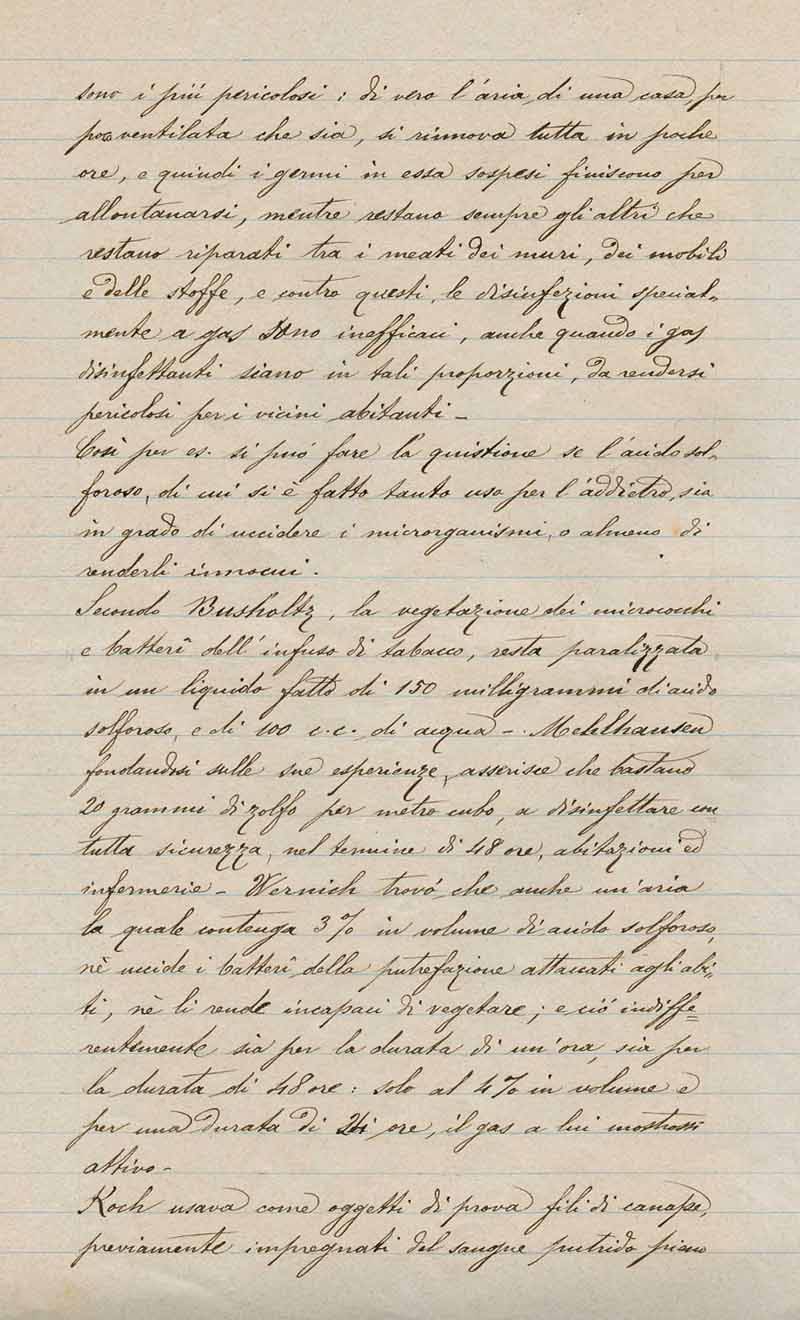 sono i più pericolosi: di vero l'aria di una casa, per
poco ventilata che sia, si rinnova tutta in poche
ore, e quindi i germi in essa sospesi finiscono per
allontanarsi, mentre restano sempre gli altri che
restano riparati tra i meati dei muri, dei mobili
e delle stoffe, e contro questi, le disinfezioni special-
mente a gas sono inefficaci, anche quando i gas
disinfettanti siano in tali proporzioni, da rendersi
pericolosi per i vicini abitanti -
Così per es. si può fare la quistione se l'acido sol-
foroso, di cui si è fatto tanto uso per l'addietro, sia
in grado di uccidere i microrganismi, o almeno di
renderli innocui.
Secondo Busholtz, la vegetazione dei micrococchi
e batterî dell'infuso di tabacco, resta paralizzata
in un liquido fatto di 150 milligrammi di acido
solforoso, e di 100 c.c. di acqua -. Mehlhausen
fondandosi sulle sue esperienze, asserisce che bastano
20 grammi di zolfo per metro cubo, a disinfettare con
tutta sicurezza, nel termine di 48 ore, abitazioni ed
infermerie - Wernich trovò che anche un'aria
la quale contenga 3% in volume di acido solforoso,
nè uccide i batterî della putrefazione attaccati agli abi-
ti, nè li rende incapaci di vegetare; e ciò indiffe=
rentemente sia per la durata di un'ora, sia per
la durata di 48 ore: solo al 4% in volume e
per una durata di 24 ore, il gas a lui mostrossi
attivo -
Koch usava come oggetti di prova fili di canape,
previamente impregnati del sangue putrido pieno